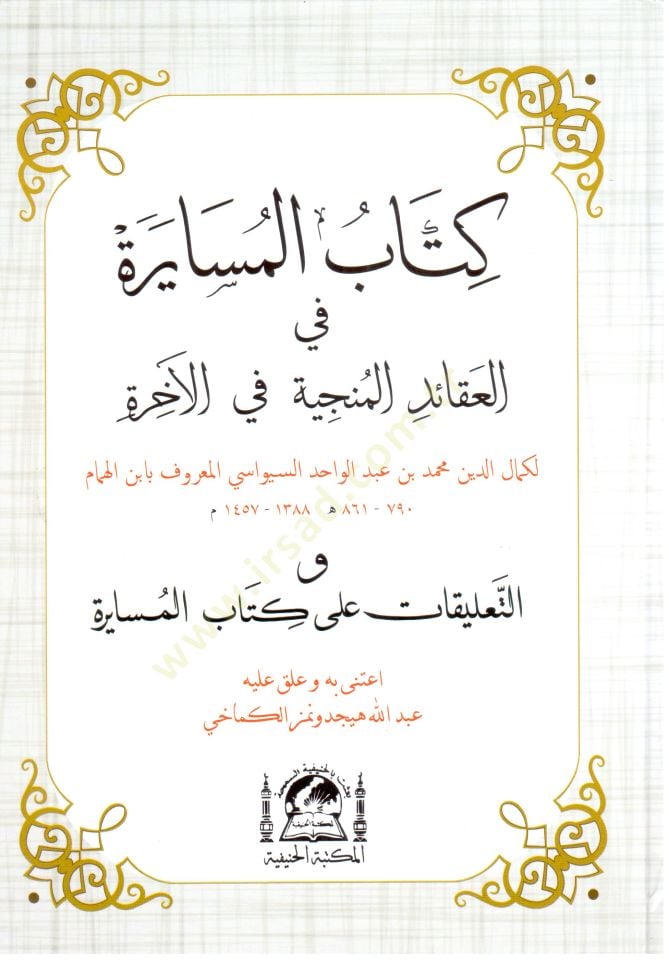 كِتَابُ المُسَايَرَة
في
العَقَائِدِ المُنجِية في الآخِرة
لكمال الدين محمد بن عبد الواحد السيواسي المعروف بابن الهمام
٧٩٠ - ٨٦١ هـ ١٣٨٨ - ١٤٥٧ م
و
التَّعليقات على كِتَاب المُسايرة
اعتنى به و علق عليه
عبد الله هيجدونمز الكماخي
بعثت بالحنيفية السمحة
المكتبة الحنيفية
المكتبة الحنيفية
www.irsad.com.tr